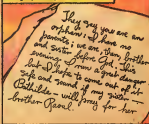 They say you are an
orphan: I have no
parents: we are, then, brother
and sister before God. This
evening I run a great danger
but I hope to come out of it
safe and sound if my sister –
Bathilde – will pray for her
brother Raoul.